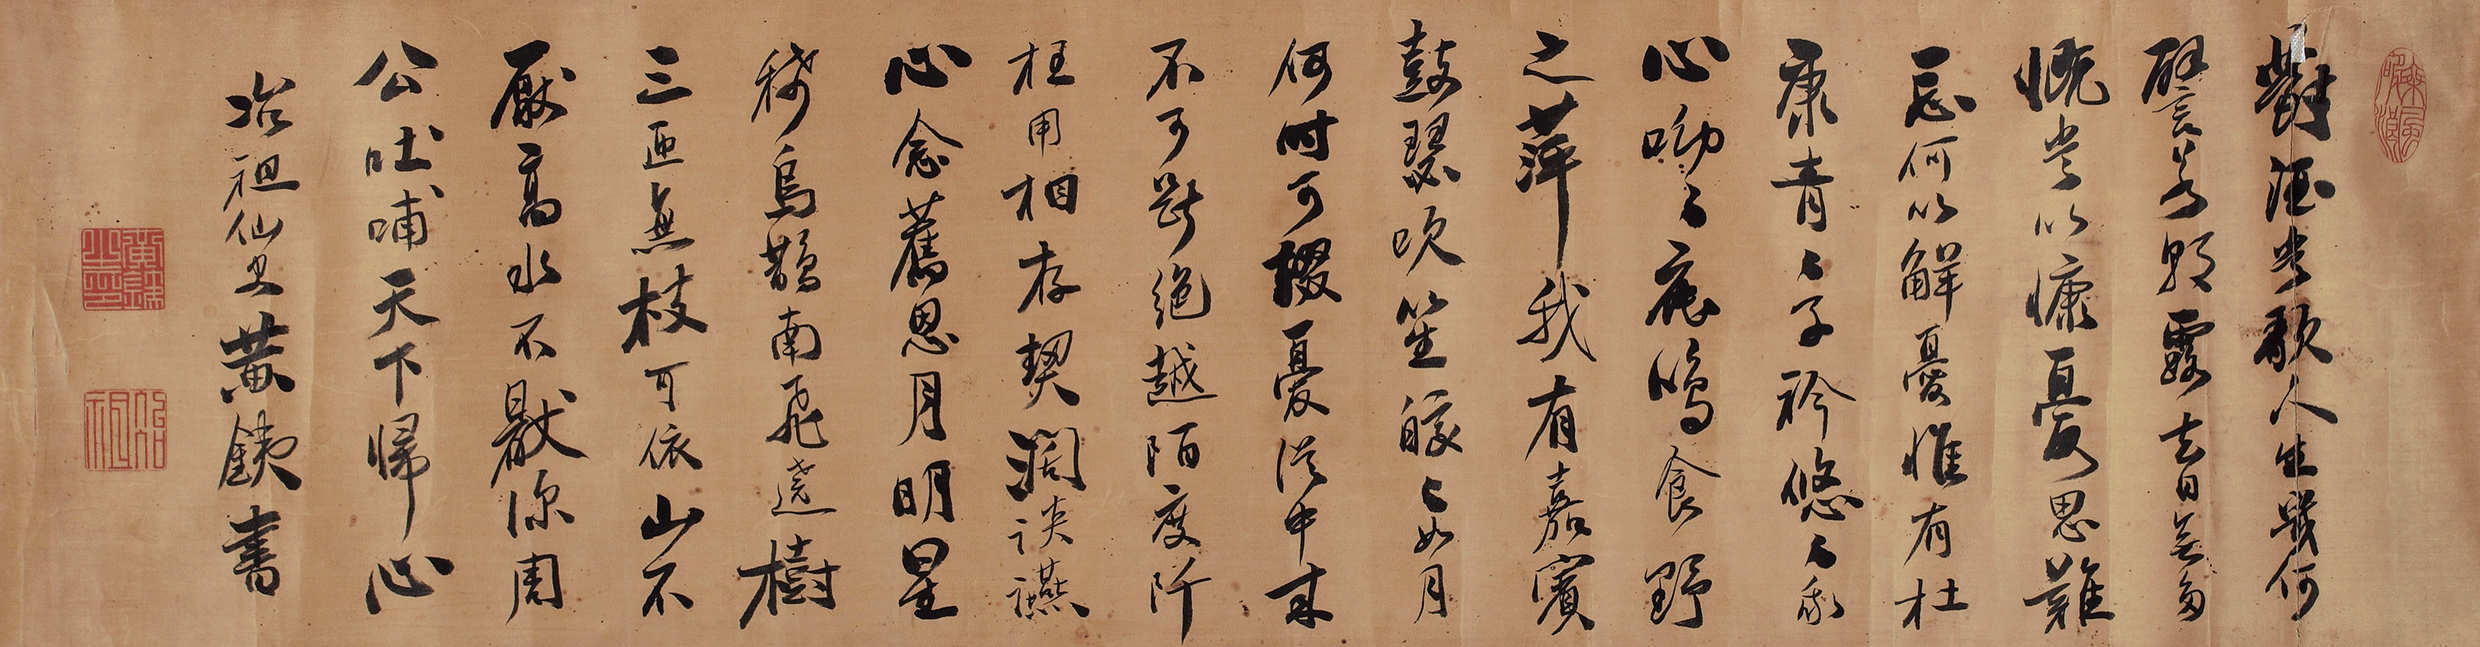 對酒當歌人生幾何
譬若朝露去日無多
慨當以慷憂思難
忘何以解憂惟有杜
康青々子衿悠々我
心呦々鹿鳴食野
之萍我有嘉賓
鼓瑟吹笙皎々如月
何時可掇憂從中來
不可斷絕越陌度阡
枉用相存契濶談讌
心念舊恩月明星
稀烏鵲南飛遶樹
三匝無枝可依山不
厭高水不厭深周
公吐哺天下歸心
冶祖仙史黃銕書
黃銕之印
冶祖